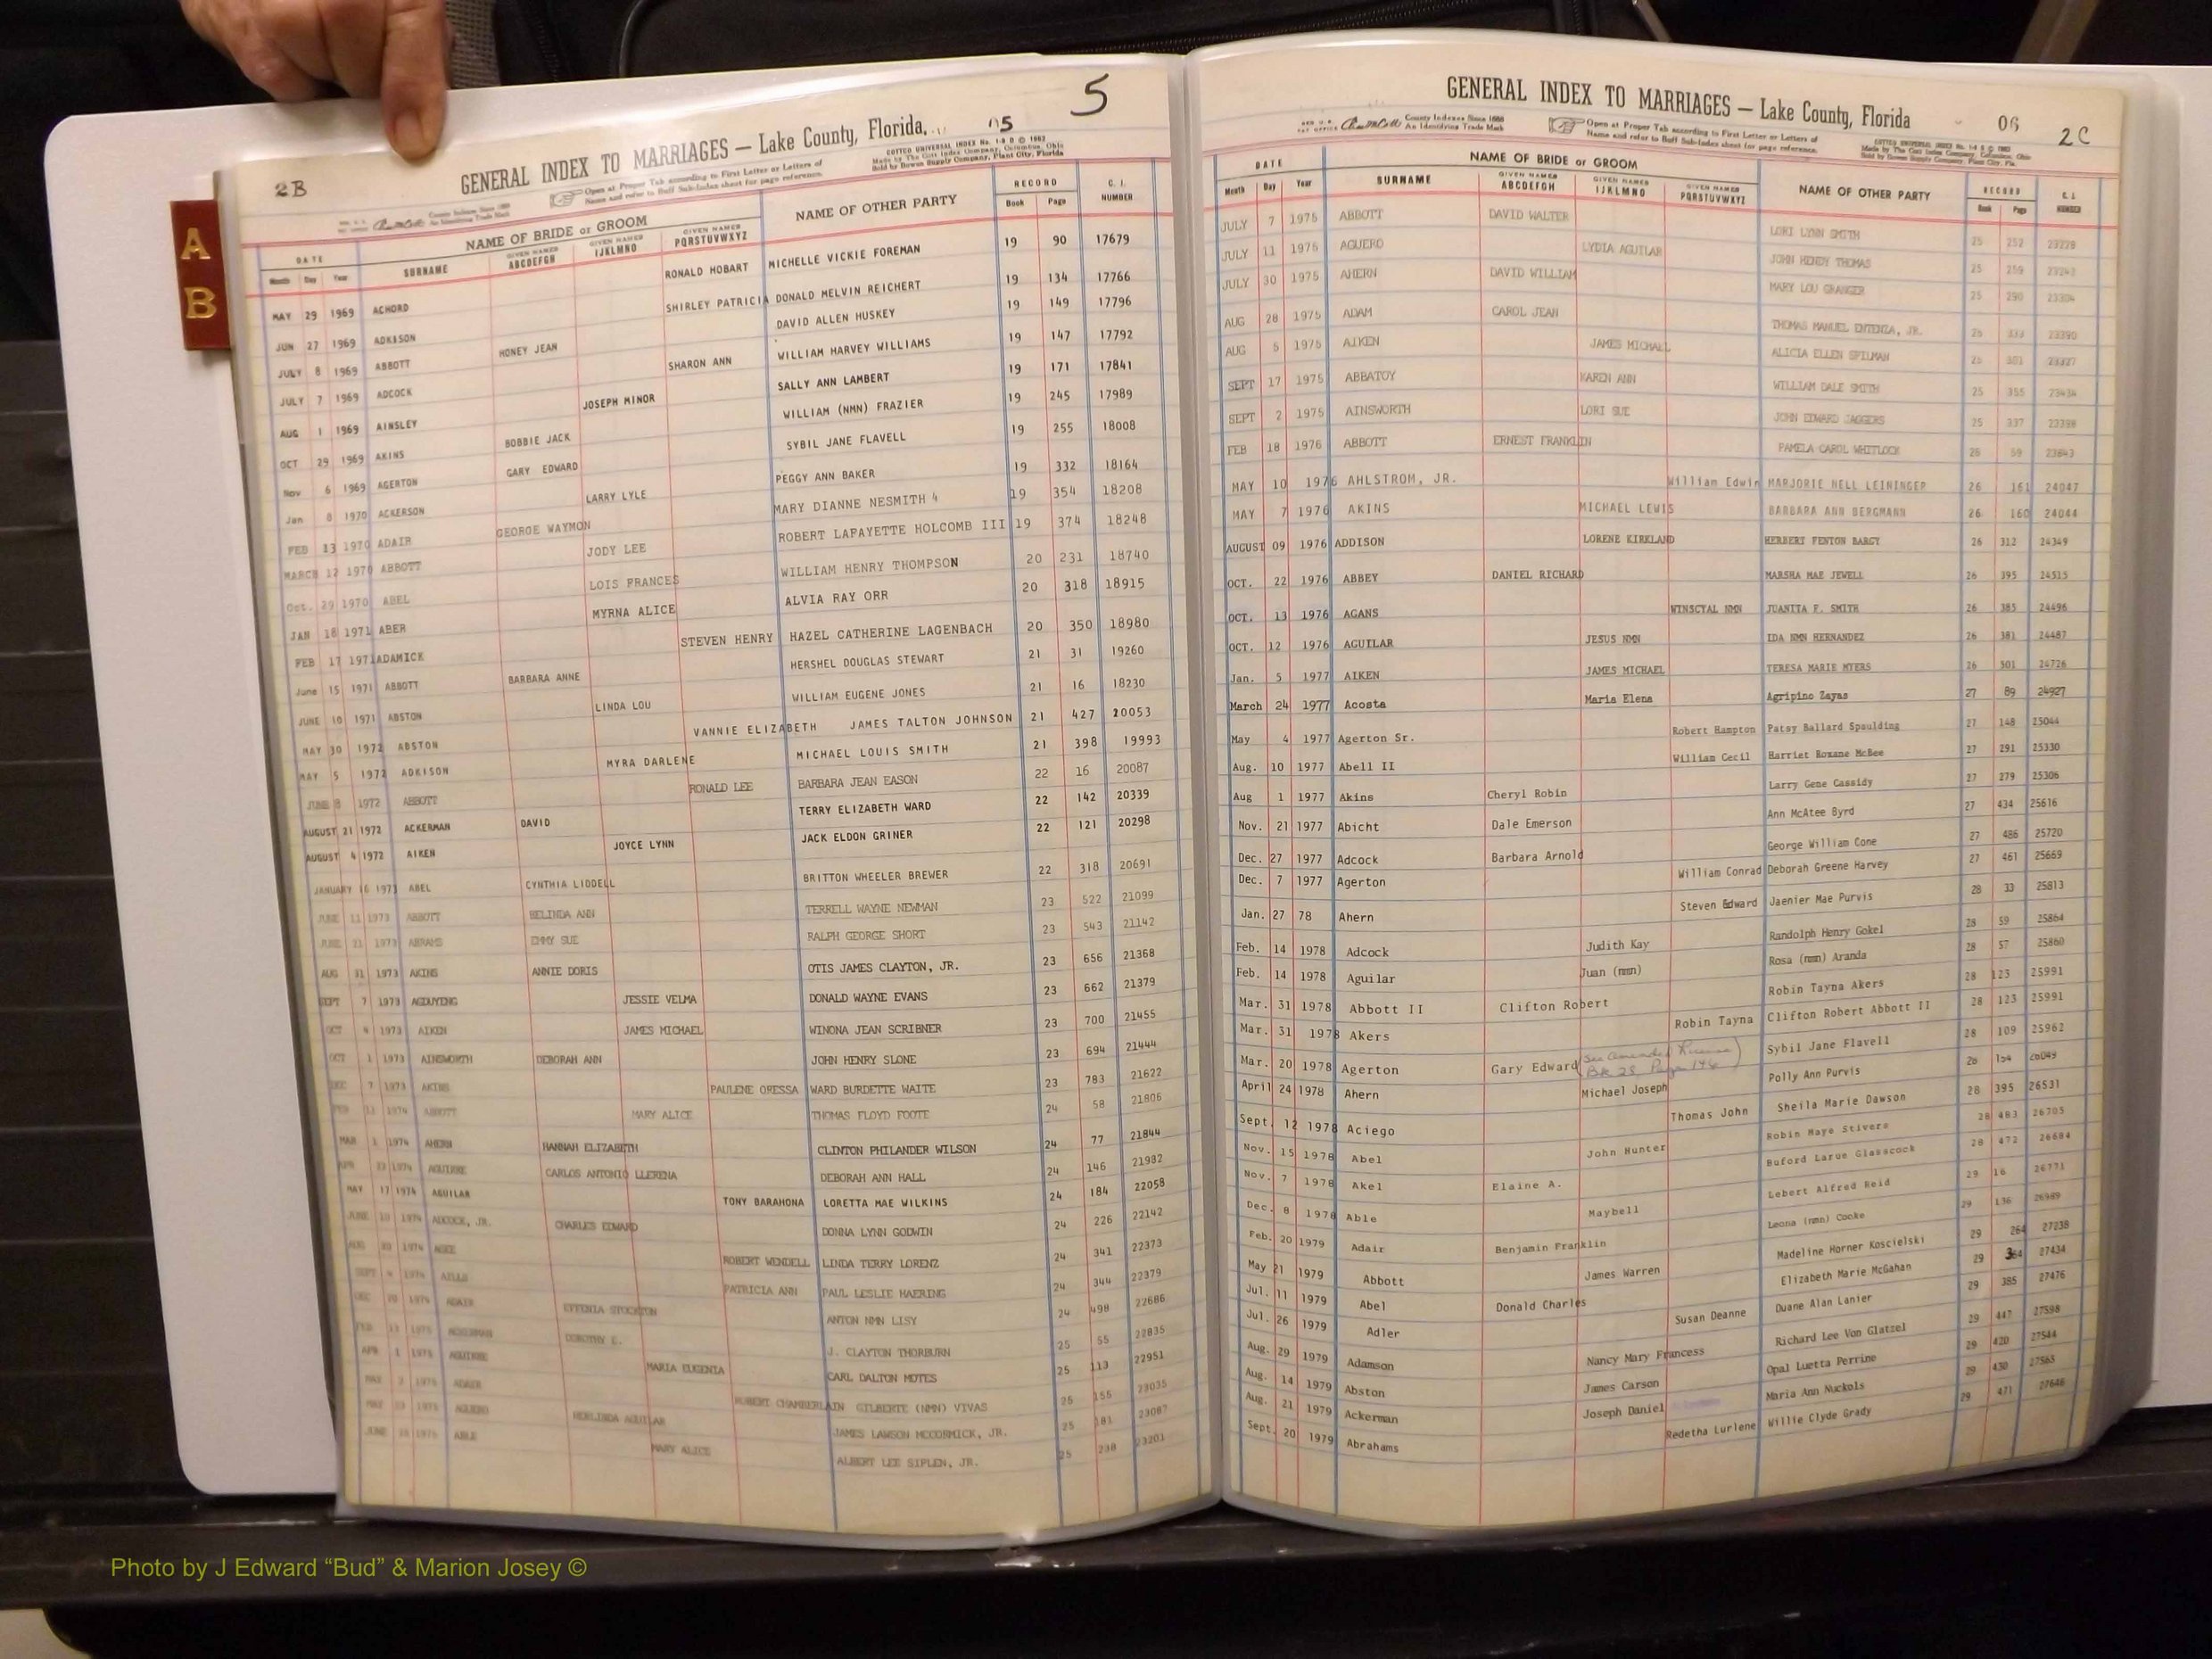 A
B
5
2B
GENERAL INDEX TO MARRIAGES — Lake County, Florida. 05
Open at Proper Tab according to First Letter or Letters of
Name and refer to Buff Sub-Index sheet for page reference.
COTTCO UNIVERSAL INDEX
Made by The Cott Index Company, Columbus, Ohio
Sold by Bowen Supply Company, Plant City, Florida
DATE NAME OF BRIDE or GROOM NAME OF OTHER PARTY RECORD C. I. NUMBER
Month Day Year SURNAME GIVEN NAMES ABCDEFGH GIVEN NAMES IJKLMNO GIVEN NAMES PQRSTUVWXYZ Book Page
MAY 29 1969 ACHORD RONALD HOBART MICHELLE VICKIE FOREMAN 19 90 17679
JUN 27 1969 ADKISON SHIRLEY PATRICIA DONALD MELVIN REICHERT 19 134 17766
JULY 8 1969 ABBOTT HONEY JEAN DAVID ALLEN HUSKEY 19 149 17796
JULY 7 1969 ADCOCK SHARON ANN WILLIAM HARVEY WILLIAMS 19 147 17792
AUG 1 1969 AINSLEY JOSEPH MINOR SALLY ANN LAMBERT 19 171 17841
OCT 29 1969 AKINS BOBBIE JACK WILLIAM (NMN) FRAZIER 19 245 17989
Nov 6 1969 AGERTON GARY EDWARD SYBIL JANE FLAVELL 19 255 18008
Jan 8 1970 ACKERSON LARRY LYLE PEGGY ANN BAKER 19 332 18164
FEB 13 1970 ADAIR GEORGE WAYMON MARY DIANNE NESMITH 19 354 18208
MARCH 12 1970 ABBOTT JODY LEE ROBERT LAFAYETTE HOLCOMB III 19 374 18248
Oct. 29 1970 ABEL LOIS FRANCES WILLIAM HENRY THOMPSON 20 231 18740
JAN 18 1971 ABER MYRNA ALICE ALVIA RAY ORR 20 318 18915
FEB 17 1971 ADAMICK STEVEN HENRY HAZEL CATHERINE LAGENBACH 20 350 18980
June 15 1971 ABBOTT BARBARA ANNE HERSHEL DOUGLAS STEWART 21 31 19260
JUNE 10 1971 ABSTON LINDA LOU WILLIAM EUGENE JONES 21 16 18230
MAY 30 1972 ABSTON VANNIE ELIZABETH JAMES TALTON JOHNSON 21 427 20053
MAY 5 1972 ADKISON MYRA DARLENE MICHAEL LOUIS SMITH 21 398 19993
JUNE 8 1972 ABBOTT RONALD LEE BARBARA JEAN EASON 22 16 20087
AUGUST 21 1972 ACKERMAN DAVID TERRY ELIZABETH WARD 22 142 20339
AUGUST 4 1972 AIKEN JOYCE LYNN JACK ELDON GRINER 22 121 20298
JANUARY 16 1973 ABEL CYNTHIA LIDDELL BRITTON WHEELER BREWER 22 318 20691
JUNE 11 1973 ABBOTT BELINDA ANN TERRELL WAYNE NEWMAN 23 522 21099
JUNE 21 1973 ABRAMS EMMY SUE RALPH GEORGE SHORT 23 543 21142
AUG 31 1973 AKINS ANNIE DORIS OTIS JAMES CLAYTON, JR. 23 656 21368
SEPT 7 1973 JESSIE VELMA DONALD WAYNE EVANS 23 662 21379
OCT 4 1973 AIKEN JAMES MICHAEL WINONA JEAN SCRIBNER 23 700 21455
OCT 1 1973 AINSWORTH DEBORAH ANN JOHN HENRY SLONE 23 694 21444
DEC 7 1973 AKINS PAULENE ORESSA WARD BURDETTE WAITE 23 783 21622
FEB 11 1974 ABBOTT MARY ALICE THOMAS FLOYD FOOTE 24 58 21806
MAR 1 1974 AHERN HANNAH ELIZABETH CLINTON PHILANDER WILSON 24 77 21844
1974 AGUIRRE CARLOS ANTONIO LLERENA DEBORAH ANN HALL 24 146 21982
MAY 17 1974 AGUILAR TONY BARAHONA LORETTA MAE WILKINS 24 184 22058
JUNE 10 1974 ADCOCK, JR. CHARLES EDWARD DONNA LYNN GODWIN 24 226 22142
AUG 1974 AGEE ROBERT WENDELL LINDA TERRY LORENZ 24 341 22373
SEPT 1974 PATRICIA ANN PAUL LESLIE HAERING 24 344 22379
DEC 1974 ADAIR EFFENIA STOCKTON ANTON NMN LISY 24 498 22686
FEB 1975 ACKERMAN DOROTHY E. J. CLAYTON THORBURN 25 55 22835
APR 1 1975 AGUIRRE MARIA EUGENIA CARL DALTON MOTES 25 113 22951
MAY 1975 ADAIR ROBERT CHAMBERLAIN GILBERTE (NMN) VIVAS 25 155 23035
MAY 1975 AGUERO HERLINDA AGUILAR JAMES LAWSON MCCORMICK, JR. 25 181 23087
JUNE 1975 ABLE MARY ALICE ALBERT LEE SIPLEN, JR. 25 238 23201
GENERAL INDEX TO MARRIAGES — Lake County, Florida 06 2C
County Indexes Since 1888
An Identifying Trade Mark
Open at Proper Tab according to First Letter or Letters of
Name and refer to Buff Sub-Index sheet for page reference.
DATE NAME OF BRIDE or GROOM NAME OF OTHER PARTY RECORD C. I. NUMBER
Month Day Year SURNAME GIVEN NAMES ABCDEFGH GIVEN NAMES IJKLMNO GIVEN NAMES PQRSTUVWXYZ Book Page
JULY 7 1975 ABBOTT DAVID WALTER LORI LYNN SMITH 25 252 23228
JULY 11 1975 AGUERO LYDIA AGUILAR JOHN HENRY THOMAS 25 259 23242
JULY 30 1975 AHERN DAVID WILLIAM MARY LOU GRANGER 25 290 23304
AUG 28 1975 ADAM CAROL JEAN THOMAS MANUEL ENTENZA, JR. 25 333 23390
AUG 5 1975 AIKEN JAMES MICHAEL ALICIA ELLEN SPILMAN 25 301 23327
SEPT 17 1975 ABBATOY KAREN ANN WILLIAM DALE SMITH 25 355 23434
SEPT 2 1975 AINSWORTH LORI SUE JOHN EDWARD JAGGERS 25 337 23398
FEB 18 1976 ABBOTT ERNEST FRANKLIN PAMELA CAROL WHITLOCK 26 59 23843
MAY 10 1976 AHLSTROM, JR. William Edwin MARJORIE NELL LEININGER 26 161 24047
MAY 7 1976 AKINS MICHAEL LEWIS BARBARA ANN BERGMANN 26 160 24044
AUGUST 09 1976 ADDISON LORENE KIRKLAND HERBERT FENTON BARGY 26 312 24349
OCT. 22 1976 ABBEY DANIEL RICHARD MARSHA MAE JEWELL 26 395 24515
OCT. 13 1976 AGANS WINSCYAL NMN JUANITA F. SMITH 26 385 24496
OCT. 12 1976 AGUILAR JESUS NMN IDA NMN HERNANDEZ 26 381 24487
Jan. 5 1977 AIKEN JAMES MICHAEL TERESA MARIE MYERS 26 501 24726
March 24 1977 Acosta Maria Elena Agripino Zayas 27 89 24927
May 4 1977 Agerton Sr. Robert Hampton Patsy Ballard Spaulding 27 148 25044
Aug. 10 1977 Abell II William Cecil Harriet Roxane McBee 27 291 25330
Aug 1 1977 Akins Cheryl Robin Larry Gene Cassidy 27 279 25306
Nov. 21 1977 Abicht Dale Emerson Ann McAtee Byrd 27 434 25616
Dec. 27 1977 Adcock Barbara Arnold George William Cone 27 486 25720
Dec. 7 1977 Agerton William Conrad Deborah Greene Harvey 27 461 25669
Jan. 27 78 Ahern Steven Edward Jaenier Mae Purvis 28 33 25813
Feb. 14 1978 Adcock Judith Kay Randolph Henry Gokel 28 59 25864
Feb. 14 1978 Aguilar Juan (nmn) Rosa (nmn) Aranda 28 57 25860
Mar. 31 1978 Abbott II Clifton Robert Robin Tayna Akers 28 123 25991
Mar. 31 1978 Akers Robin Tayna Clifton Robert Abbott II 28 123 25991
Mar. 20 1978 Agerton Gary Edward (See Amended License Bk 28, Page 146) Sybil Jane Flavell 28 109 25962
April 24 1978 Ahern Michael Joseph Polly Ann Purvis 28 154 26049
Sept. 12 1978 Aciego Thomas John Sheila Marie Dawson 28 395 26531
Nov. 15 1978 Abel John Hunter Robin Maye Stivers 28 483 26705
Nov. 7 1978 Akel Elaine A. Buford Larue Glasscock 28 472 26684
Dec. 8 1978 Able Maybell Lebert Alfred Reid 29 16 26771
Feb. 20 1979 Adair Benjamin Franklin Leona (nmn) Cooke 29 136 26989
May 21 1979 Abbott James Warren Madeline Horner Koscielski 29 264 27238
Jul. 11 1979 Abel Donald Charles Elizabeth Marie McGahan 29 364 27434
Jul. 26 1979 Adler Susan Deanne Duane Alan Lanier 29 385 27476
Aug. 29 1979 Adamson Nancy Mary Francess Richard Lee Von Glatzel 29 447 27598
Aug. 14 1979 Abston James Carson Opal Luetta Perrine 29 420 27544
Aug. 21 1979 Ackerman Joseph Daniel Maria Ann Nuckols 29 430 27565
Sept. 20 1979 Abrahams Redetha Lurlene Willie Clyde Grady 29 471 27646
Photo by J Edward “Bud” & Marion Josey ©